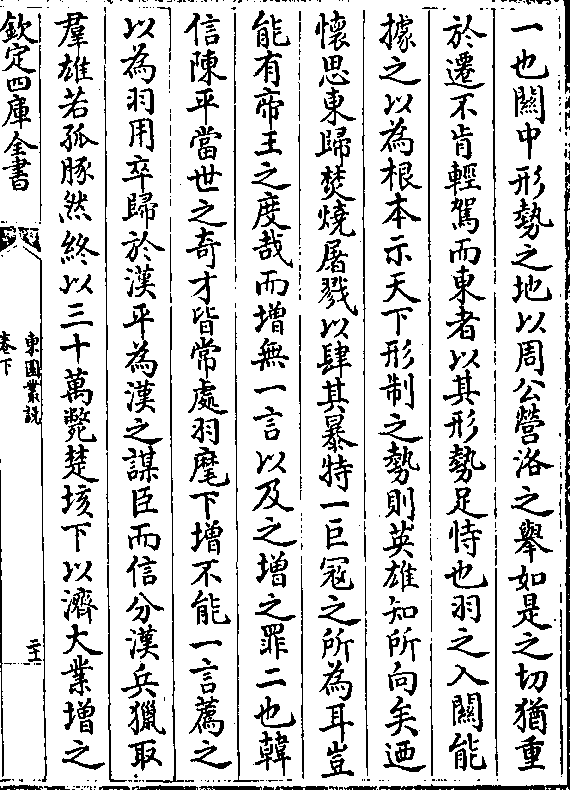 一也關中形勢之地以周公營洛之舉如是之切猶重
於遷不肯輕駕而東者以其形勢足恃也羽之入關能
據之以為根本示天下形制之勢則英雄知所向矣迺
懷思東歸焚燒屠戮以肆其暴特一巨冦之所為耳豈
能有帝王之度哉而增無一言以及之增之罪二也韓
信陳平當世之奇才皆常處羽麾下增不能一言薦之
以為羽用卒歸於漢平為漢之謀臣而信分漢兵獵取
羣雄若孤豚然終以三十萬斃楚垓下以濟大業增之
欽定四庫全書
東園叢說
卷下
二十